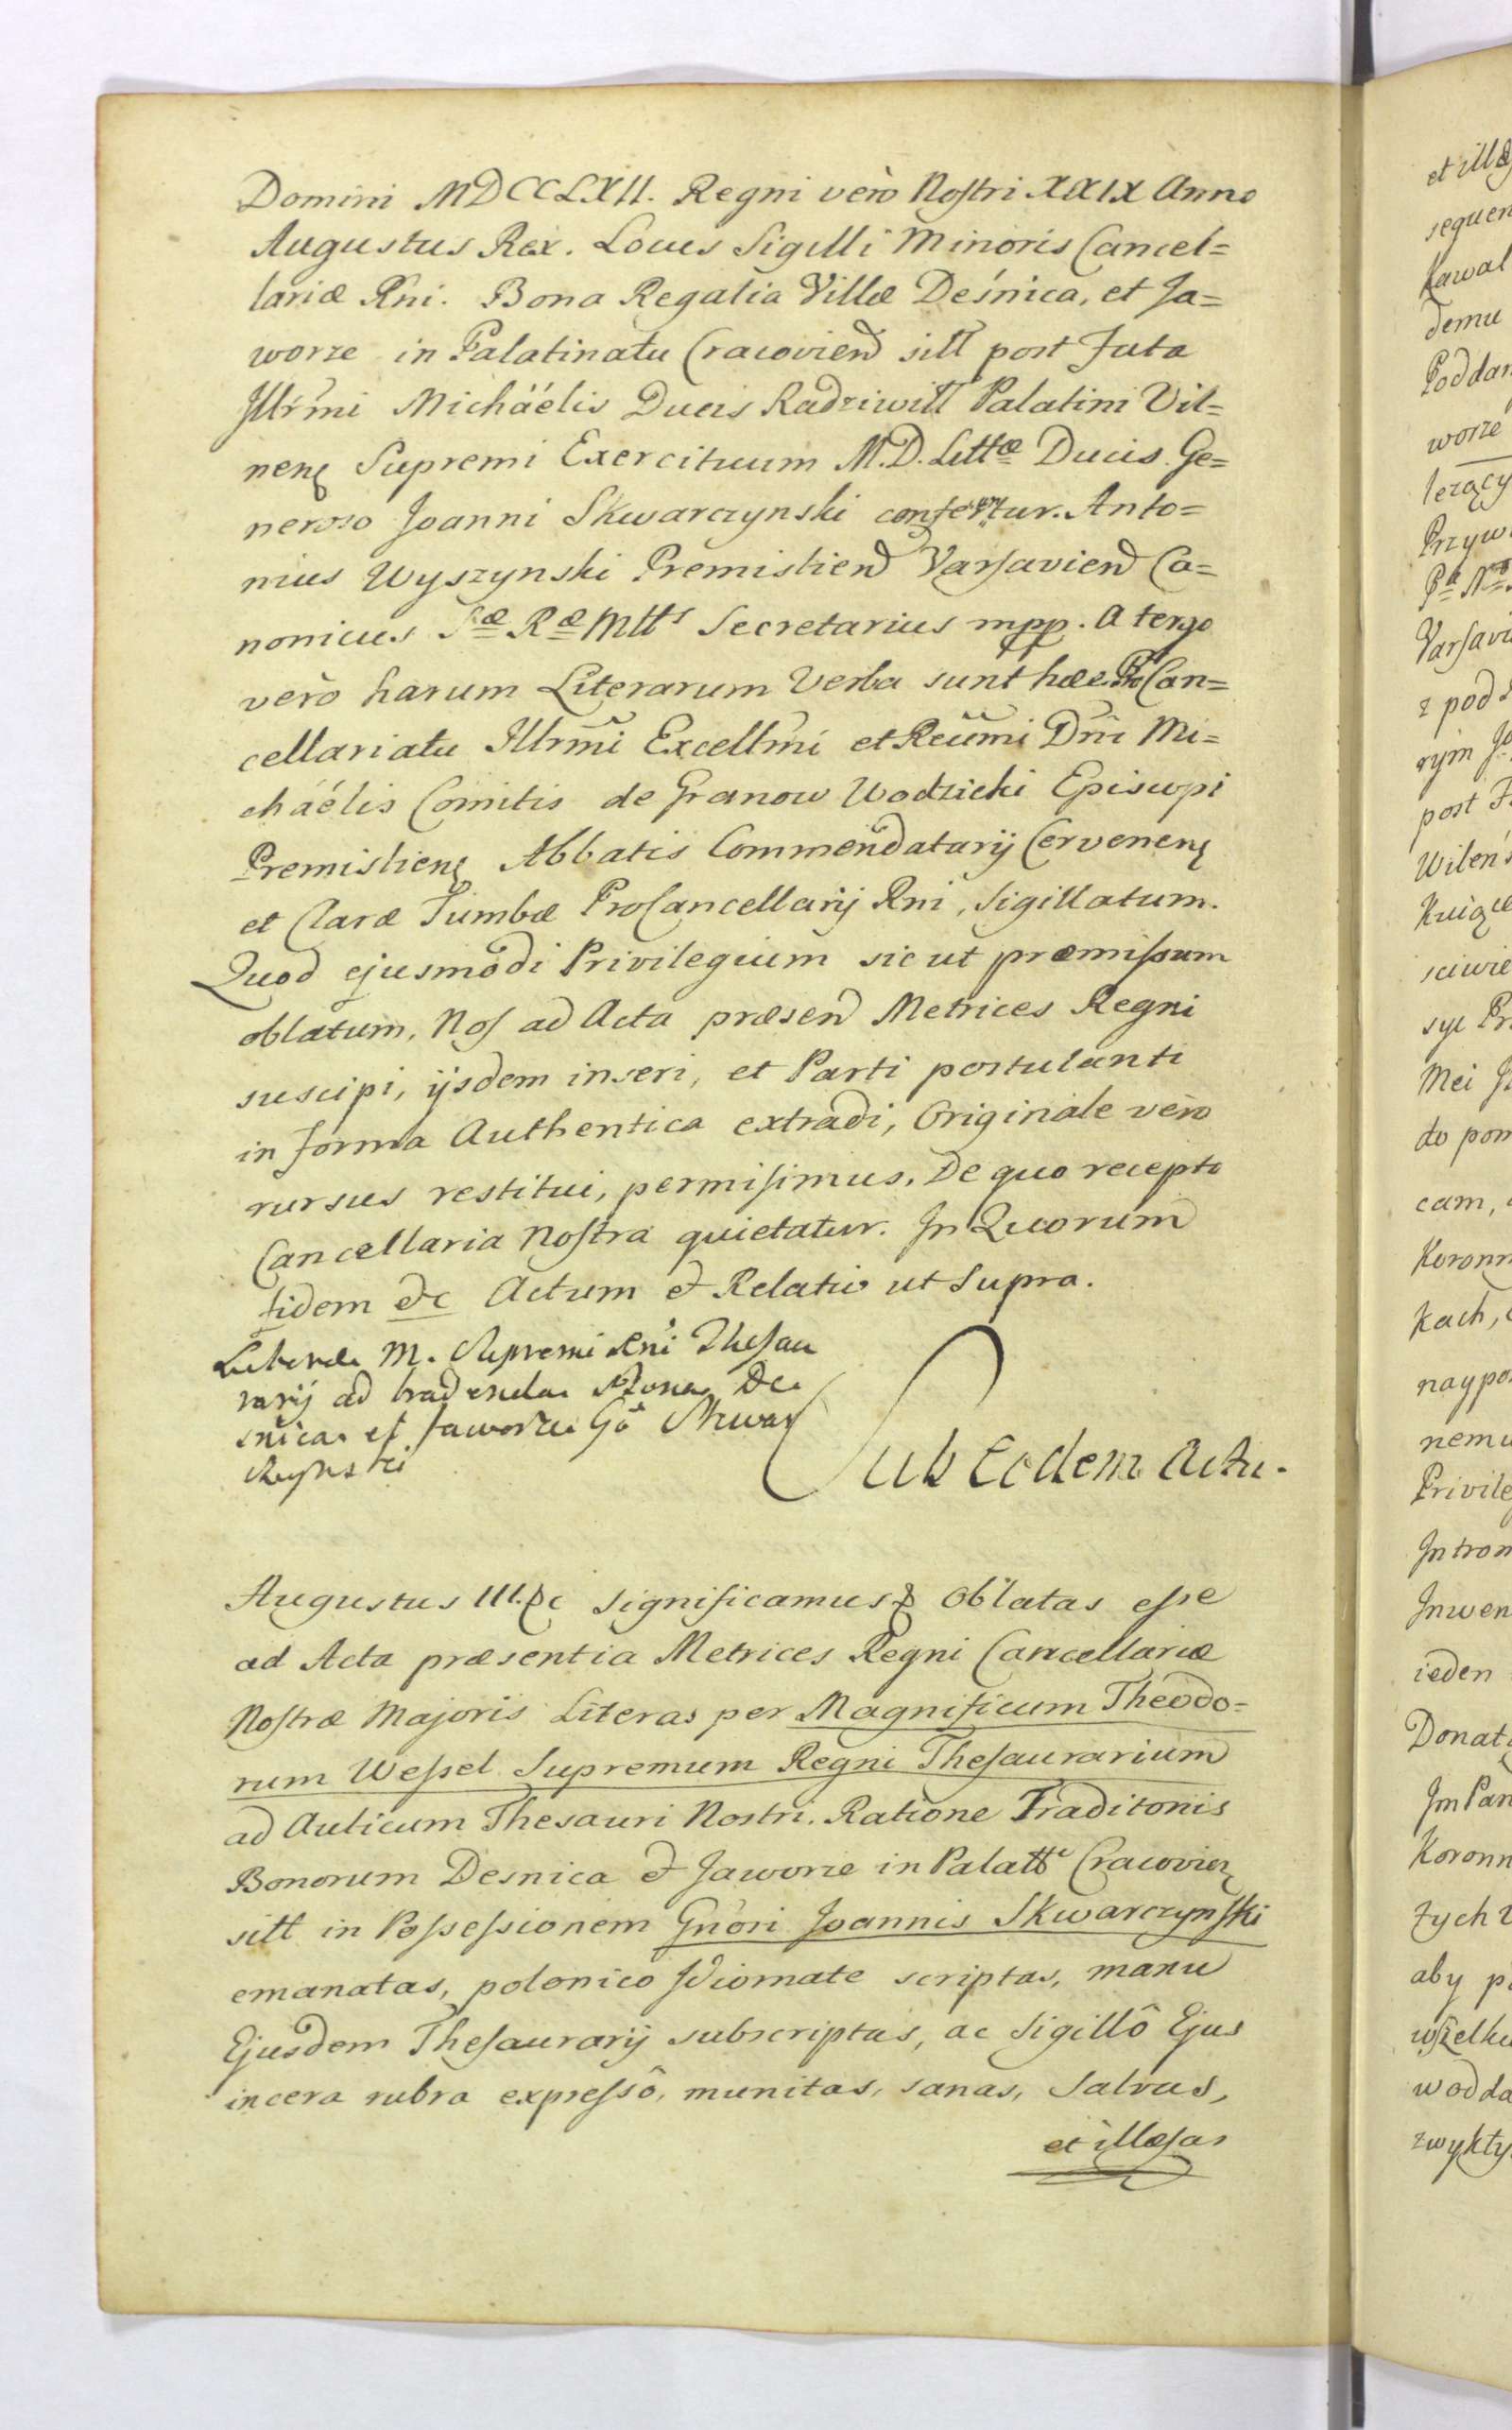 Domini MDCCLXII. Regni verò Nostri XXIX Anno
Augustus Rex. Locus Sigilli Minoris Cancel=
lariæ Rni. Bona Regalia Villæ Deśnica, et Ja=
worze in Palatinatu Cracovien sitt post Fata
Illrmi Michäélis Ducis Radziwiłł Palatini Vil=
nen Supremi Exercituum M.D. Littæ Ducis. Ge=
neroso Joanni Skwarczynski confertur. Anto=
nius Wyszynski Premislien Varsavien Ca=
nonicus Sæ Ræ Mtts Secretarius mpp. A tergo
verò harum Literarum Verba sunt hæc. Pro Can=
cellariatu Illrmi Excellmi et Reumi Dni Mi=
chäélis Comitis de Granow Wodzicki Episcopi
Premislien Abbatis Commendatarij Cervenen
et Claræ Tumbæ ProCancellarij Rni, Sigillatum.
Quod ejusmodi Privilegium sic ut præmissum
oblatum, Nos ad Acta præsen Metrices Regni
suscipi, ijsdem inseri, et Parti postulanti
in forma Authentica extradi, Originale verò
rursus restitui, permisimus. De quo recepto
Cancellaria Nostra quietatur. In Quorum
fidem &c Actum & Relatio ut Supra.
M. Supremi Rni Thesau
rarij ad tradenda Bona De
śnica et Jaworze Gö Skwar
czynski
Sub Eodem Actu.
Augustus III. &c significamus & Oblatas esse
ad Acta præsentia Metrices Regni Cancellariæ
Nostræ Majoris Literas per Magnificum Theodo=
rum Wessel Supremum Regni Thesaurarium
ad Aulicum Thesauri Nostri. Ratione Traditonis
Bonorum Desnica & Jaworze in Palatte Cracovien
sitt in Possessionem Gnori Joannis Skwarczynski
emanatas, polonico Idiomate scriptas, manu
Ejusdem Thesaurarij subscriptas, ac Sigillô Ejus
in cera rubra expressô, munitas, sanas, Salvas,
et illæsas
et illæ
sequen
Kawal
demu
Poddan
worze
lezący
Przyw
Varsavi
z pod
rym
post F
Wilen
Kniąze
sciwie
syc Pr
Mei
do pom
cam,
Koronn
kach,
naypo
nemu
Privile
Introm
Inwen
ieden
Donat
Jm Pan
Koronn
tych
aby p
wszelk
wodda
zwykły